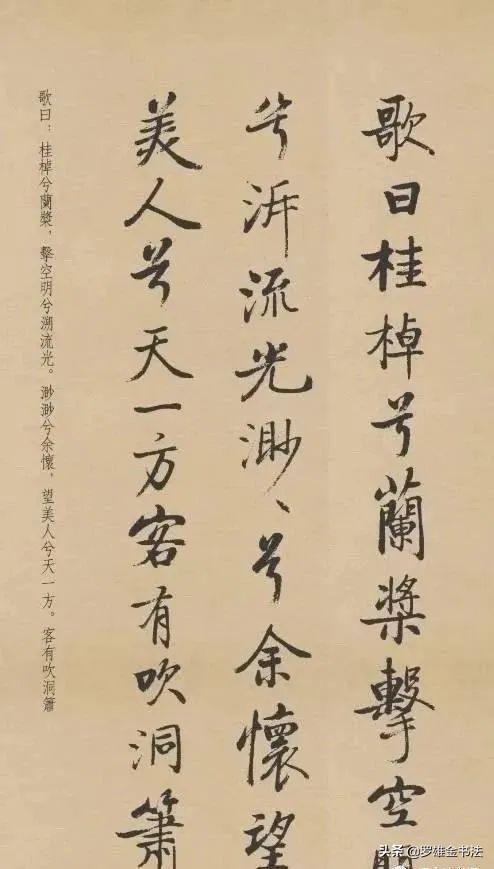 歌曰桂棹兮蘭槳擊空明
兮泝流光渺〻兮余懷望
美人兮天一方客有吹洞簫
歌曰：桂棹兮蘭槳，擊空明兮溯流光。渺渺兮余懷，望美人兮天一方。客有吹洞簫
头条 @罗雄金书法